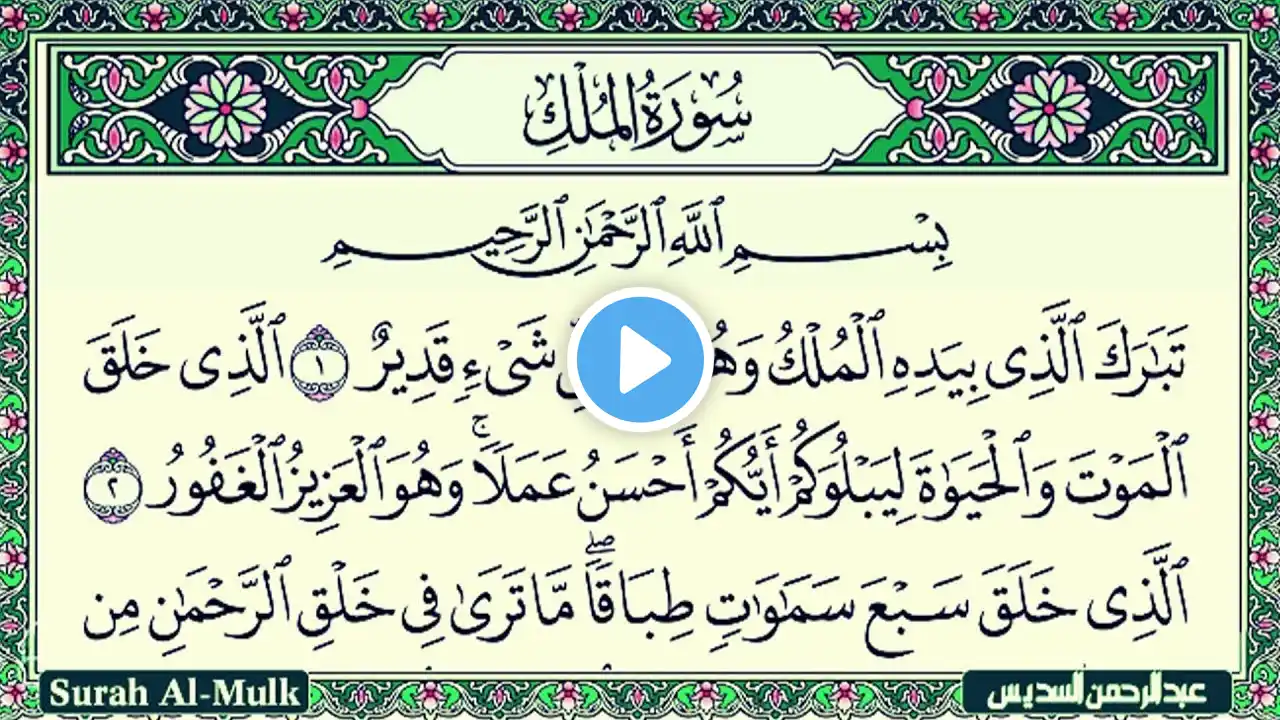 سُورَةُ المُلْكِ
بِسْمِ ٱللَّهِ ٱلرَّحْمَٰنِ ٱلرَّحِيمِ
تَبَٰرَكَ ٱلَّذِى بِيَدِهِ ٱلْمُلْكُ شَىْءٍ قَدِيرٌ ١ ٱلَّذِى خَلَقَ
ٱلْمَوْتَ وَٱلْحَيَوٰةَ لِيَبْلُوَكُمْ أَيُّكُمْ أَحْسَنُ عَمَلًاۚ وَهُوَ ٱلْعَزِيزُ ٱلْغَفُورُ ٢
ٱلَّذِى خَلَقَ سَبْعَ سَمَٰوَٰتٍ طِبَاقًاۖ مَّا تَرَىٰ فِى خَلْقِ ٱلرَّحْمَٰنِ مِن
Surah Al-Mulk
عبدالرحمن السديس